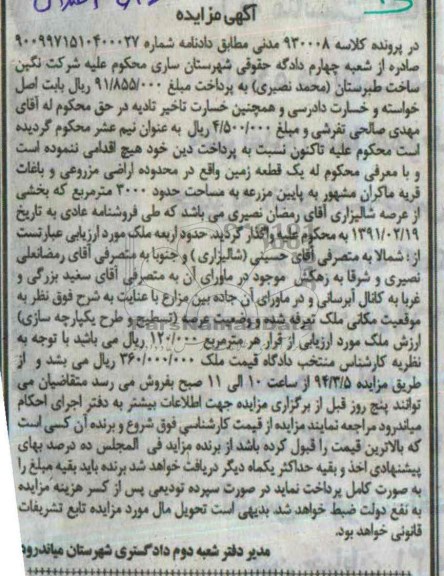 آگهی مزایده
در پرونده کلاسه ۹۳۰۰۰۸ مدنی مطابق دادنامه شماره ۹۰۰۹۹۷۱۵۱۰۴۰۰۰۲۷
صادره از شعبه چهارم دادگاه حقوقی شهرستان ساری محکوم علیه شرکت نگین
ساخت طبرستان (محمد نصیری) به پرداخت مبلغ ۹۱/۸۵۵/۰۰۰ ریال بابت اصل
خواسته و خسارت دادرسی و همچنین خسارت تاخیر تادیه در حق محکوم له آقای
مهدی صالحی تفرشی و مبلغ ۴/۵۰۰/۰۰۰ ریال به عنوان نیم عشر محکوم گردیده
است محکوم علیه تاکنون نسبت به پرداخت دین خود هیچ اقدامی ننموده است
و با معرفی محکوم له یک قطعه زمین واقع در محدوده اراضی مزروعی و باغات
قریه ماکران مشهور به پایین مزرعه به مساحت حدود ۳۰۰۰ مترمربع که بخشی
از عرصه شالیزاری آقای رمضان نصیری می باشد که طی فروشنامه عادی به تاریخ
۱۳۹۱/۰۲/۱۹ به محکوم علیه واگذار گردید. حدود اربعه ملک مورد ارزیابی عبارتست
از : شمالا به متصرفی آقای حسینی (شالیزاری) و جنوبا به متصرفی آقای رمضانعلی
نصیری و شرقا به زهکش موجود در ماورای آن به متصرفی آقای سعید بزرگی و
غربا به کانال آبرسانی و در ماورای آن جاده بین مزارع با عنایت به شرح فوق نظر به
موقعیت مکانی ملک تعرفه شده و وضعیت عرصه (تسطیح و طرح یکپارچه سازی)
ارزش ملک مورد ارزیابی از قرار هر مترمربع ۱۲۰/۰۰۰ ریال می باشد با توجه به
نظریه کارشناس منتخب دادگاه قیمت ملک ۳۶۰/۰۰۰/۰۰۰ ریال می بشد و از
طریق مزایده ۹۴/۳/۵ از ساعت ۱۰ الی ۱۱ صبح بفروش می رسد متقاضیان می
توانند پنج روز قبل از برگزاری مزایده جهت اطلاعات بیشتر به دفتر اجرای احکام
میاندرود مراجعه نمایند مزایده از قیمت کارشناسی فوق شروع و برنده آن کسی است
که بالاترین قیمت را قبول کرده باشد از برنده مزاید فی المجلس ده درصد بهای
پیشنهادی اخذ و بقیه حداکثر یکماه دیگر دریافت خواهد شد برنده باید بقیه مبلغ را
به صورت کامل پرداخت نماید در صورت سپرده تودیعی پس از کسر هزینه مزایده
به نفع دولت ضبط خواهد شد. بدیهی است تحویل مال مورد مزایده تابع تشریفات
قانونی خواهد بود.
مدیر دفتر شعبه دوم دادگستری شهرستان میاندرود